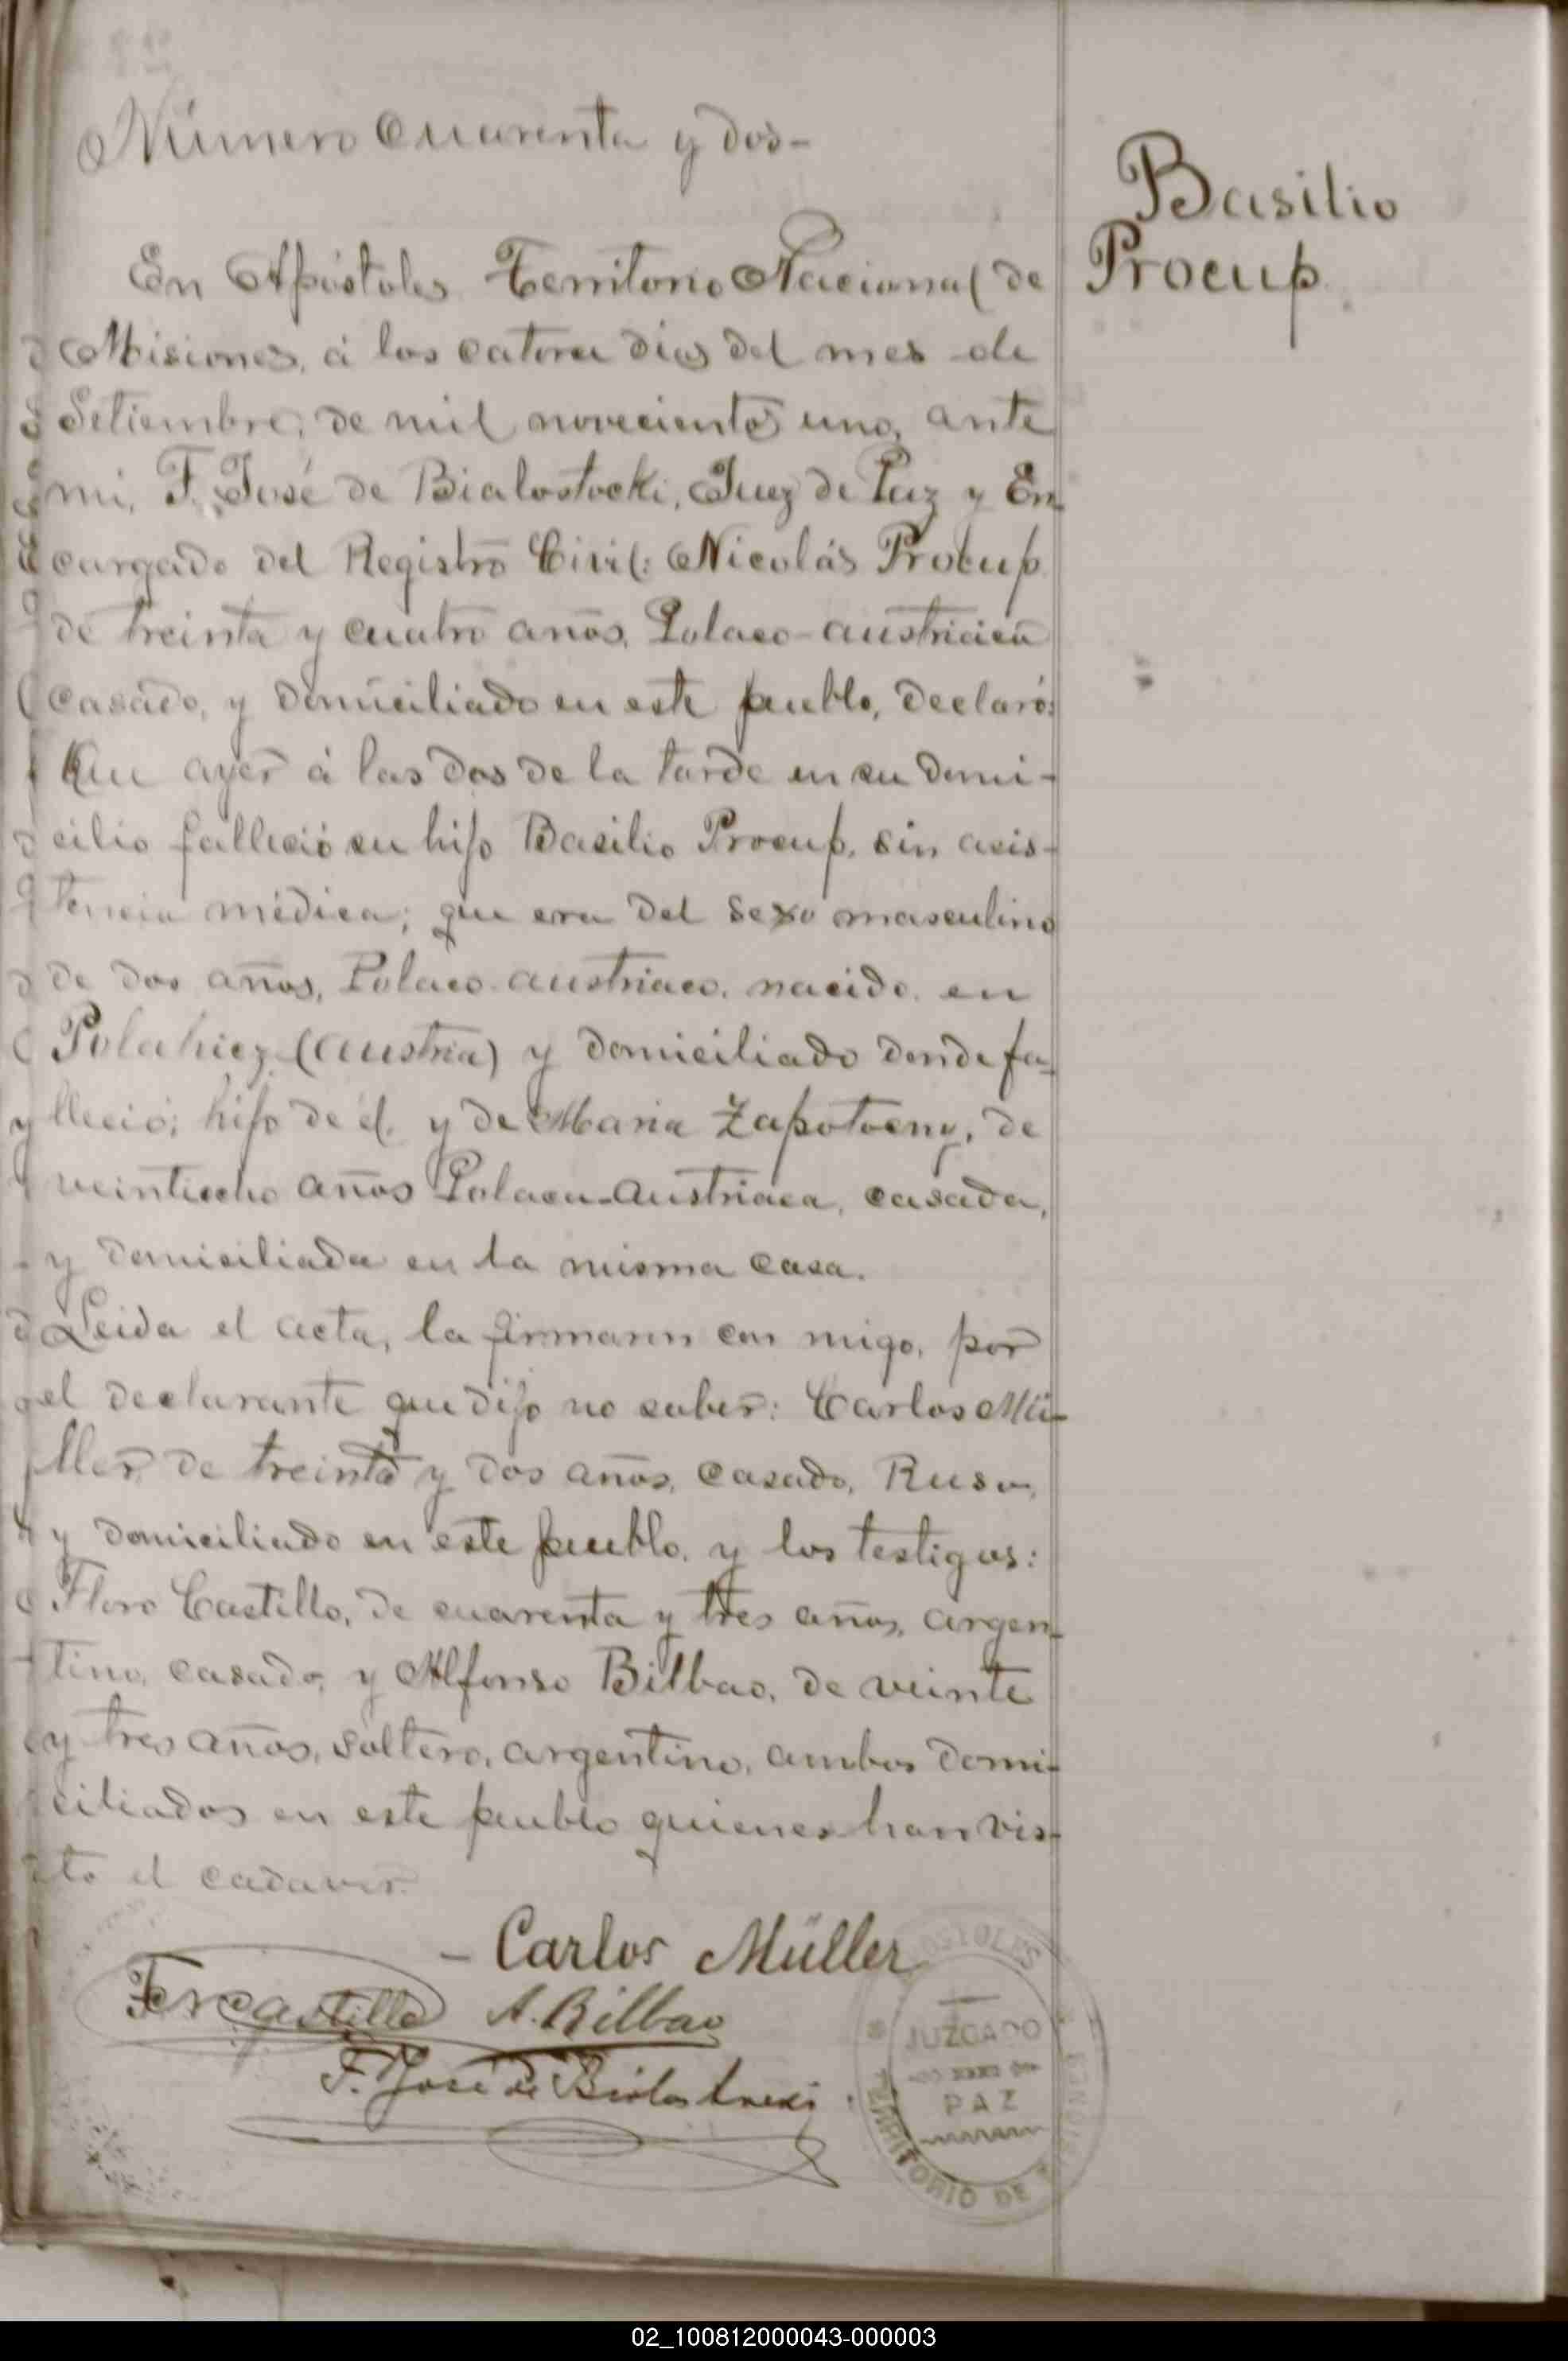 Número Cuarenta y dos-
Basilio
Procup.
En Apóstoles Territorio Nacional de
Misiones, á los catorce dias del mes de
Setiembre, de mil novecientos uno, ante
mi, F. José de Bialostocki, Juez de Paz y En-
cargado del Registro Civil: Nicolás Procup
de treinta y cuatro años, Polaco-austriaco
casado, y domiciliado en este pueblo, declaró:
Que ayer á las dos de la tarde en su domi-
cilio falleció su hijo Basilio Procup, sin asis-
tencia médica; que era del sexo masculino
de dos años, Polaco-austriaco, nacido en
Polahicz (Austria) y domiciliado donde fa-
lleció; hijo de él, y de Maria Zapotoeny, de
veintiocho años Polaca-Austriaca, casada,
y domiciliada en la misma casa.
Leida el acta, la firmaron con migo, por
el declarante que dijo no saber: Carlos Mü-
ller, de treinta y dos años, casado, Ruso,
y domiciliado en este pueblo, y los testigos:
Floro Castillo, de cuarenta y tres años, argen-
tino, casado, y Alfonso Bilbao, de veinte
y tres años, soltero, argentino, ambos domi-
ciliados en este pueblo quienes han vis-
to el cadaver.
- Carlos Müller
Castillo A. Bilbao
F. José de Bialostocki
JUZGADO
PAZ
TERRITORIO DE
02_100812000043-000003